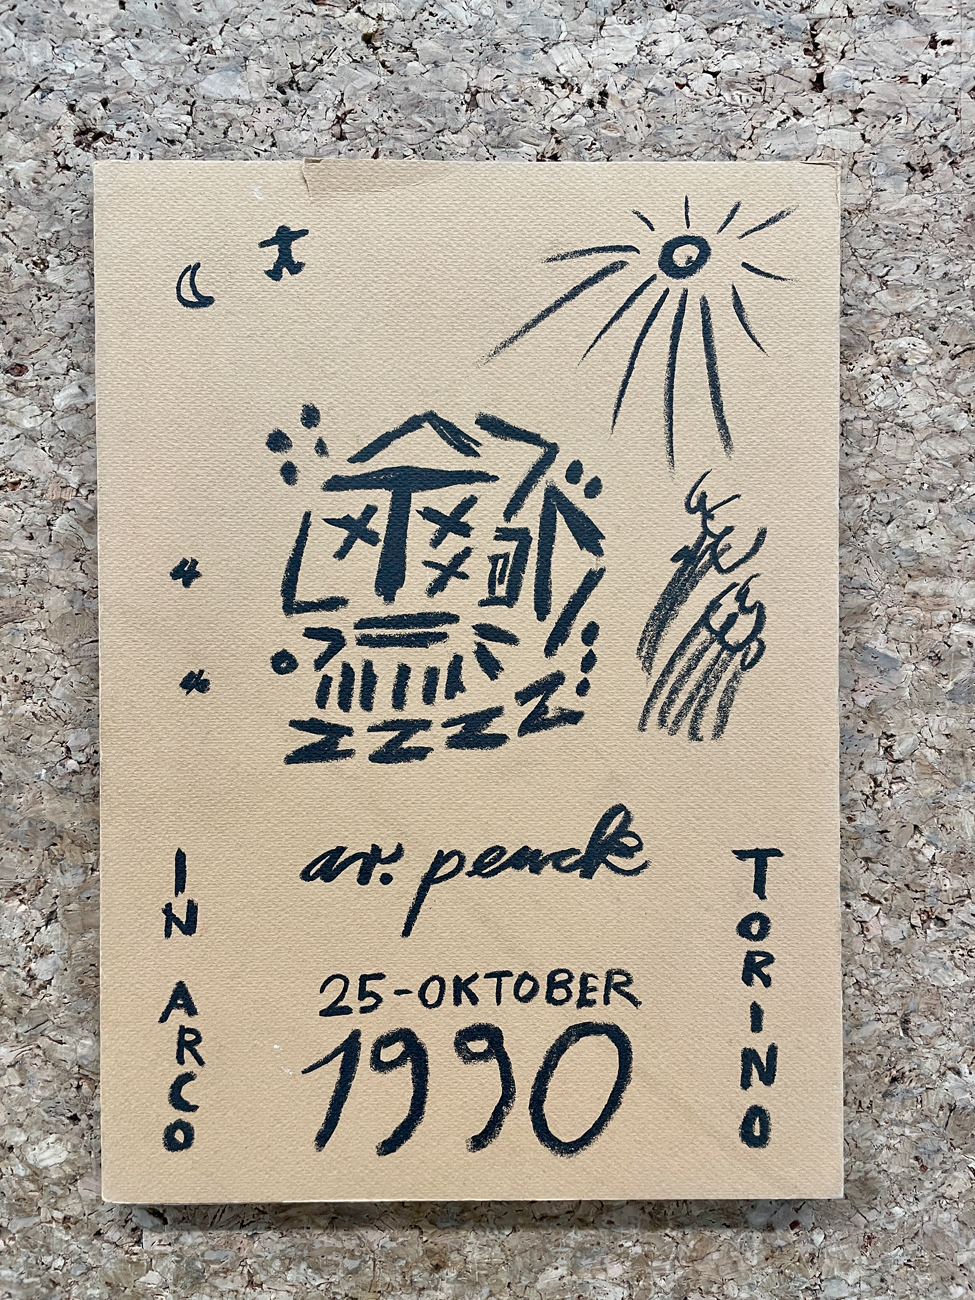 ar. penck
IN ARCO
TORINO
25-OKTOBER
1990